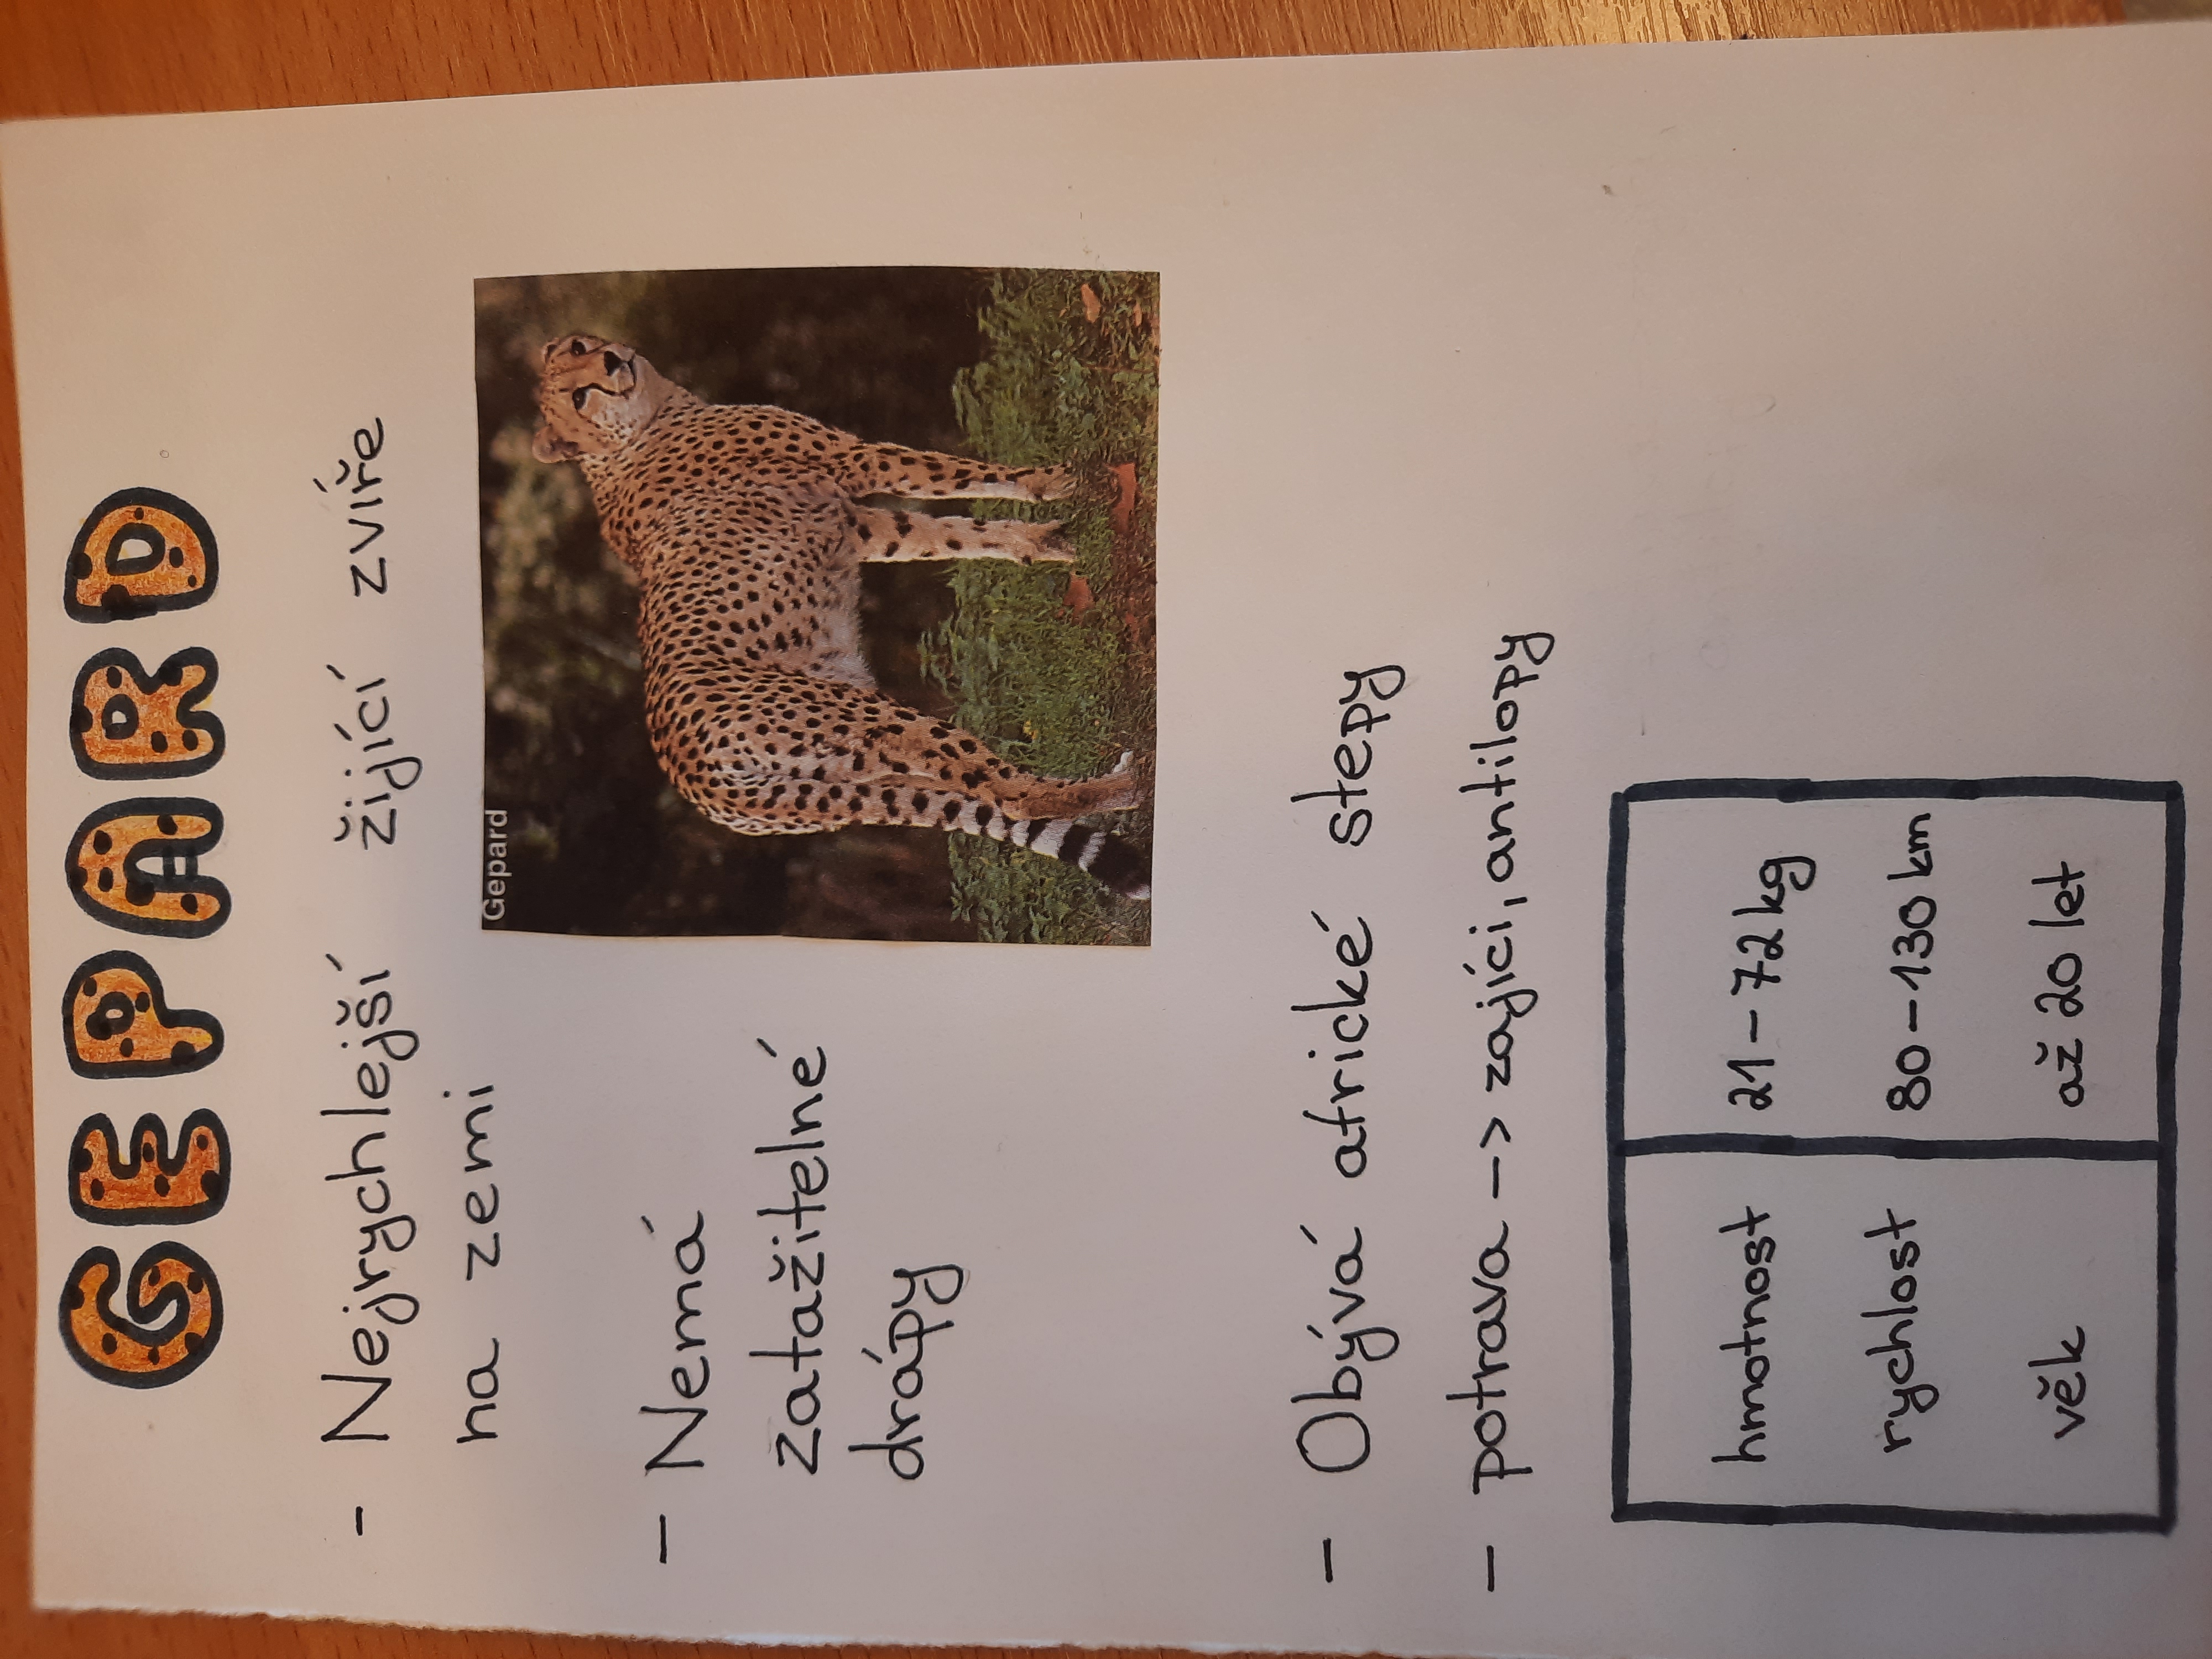 GEPARD
- Nejrychlejší žijící zvíře
na zemi
Gepard
- Nemá
zatažitelné
drápy
- Obývá africké stepy
- potrava -> zajíci, antilopy
hmotnost 21-72kg
rychlost 80-130km
věk až 20 let